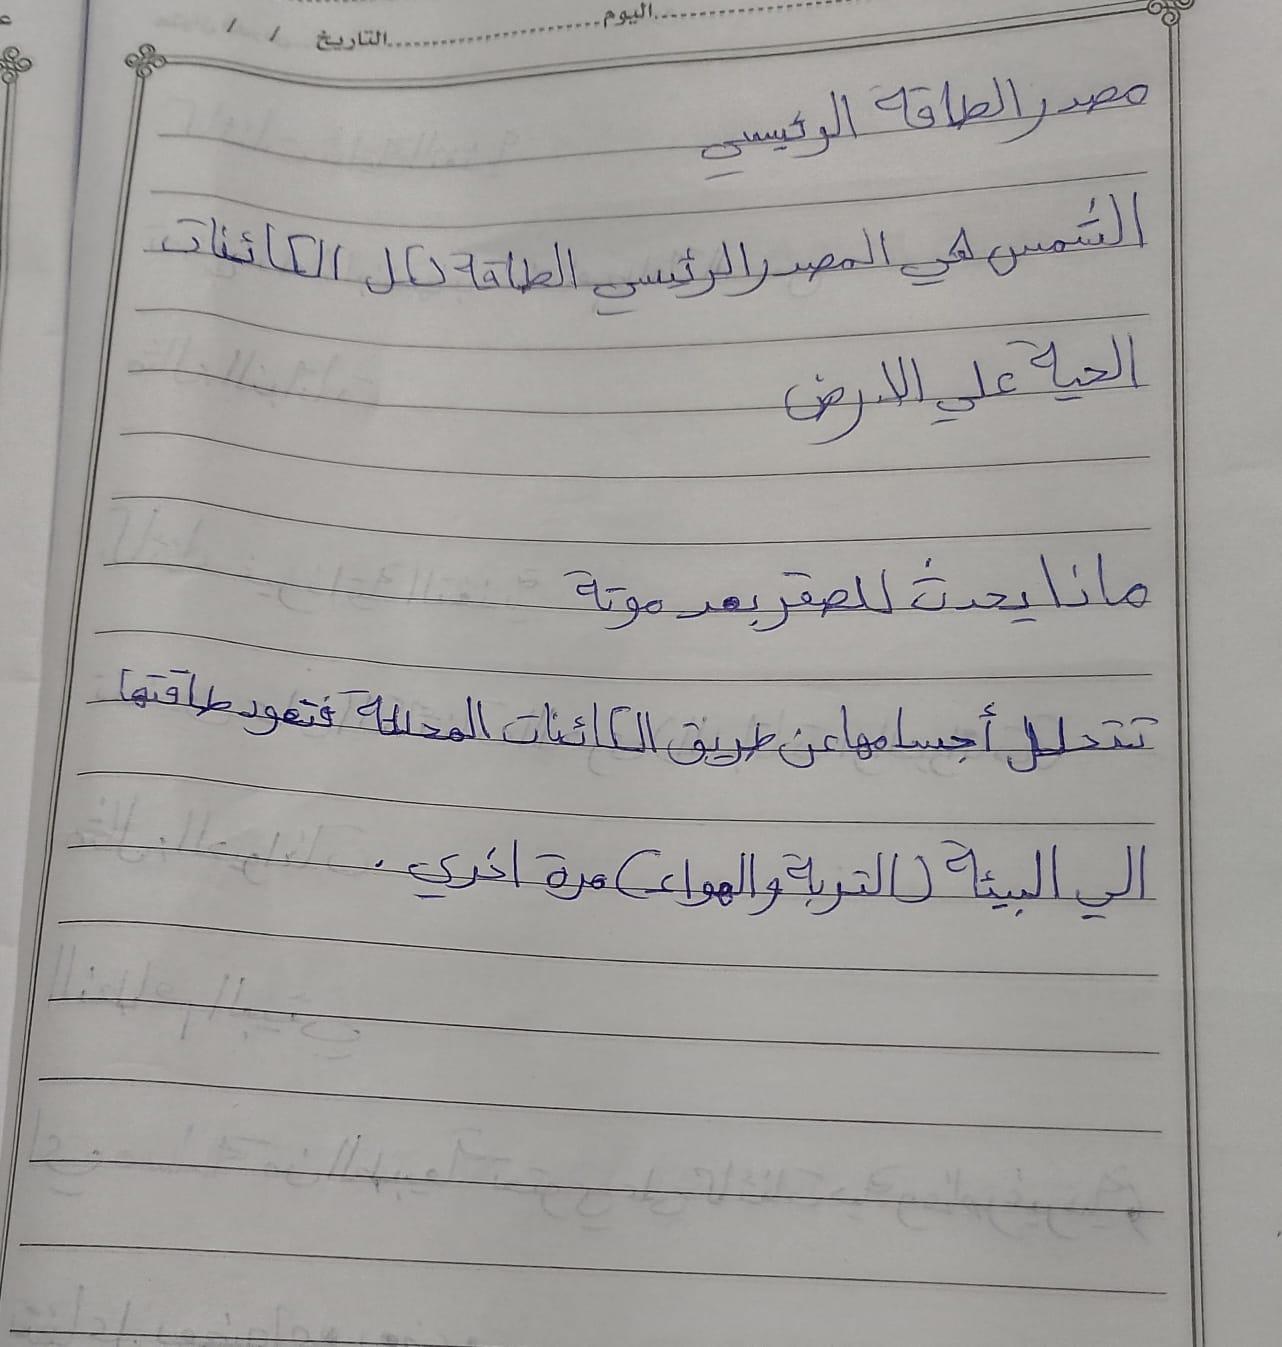 اليوم.................... التاريخ / /
مصدر الطاقة الرئيسي
الشمس هي المصدر الرئيسي الطاقة لكل الكائنات
الحية علي الارض
ماذا يحدث للصقر بعد موتة
تتحلل أجسامها عن طريق الكائنات المحللة فتعود طاقتها
الي البيئة (التربة والهواء) مرة اخري .